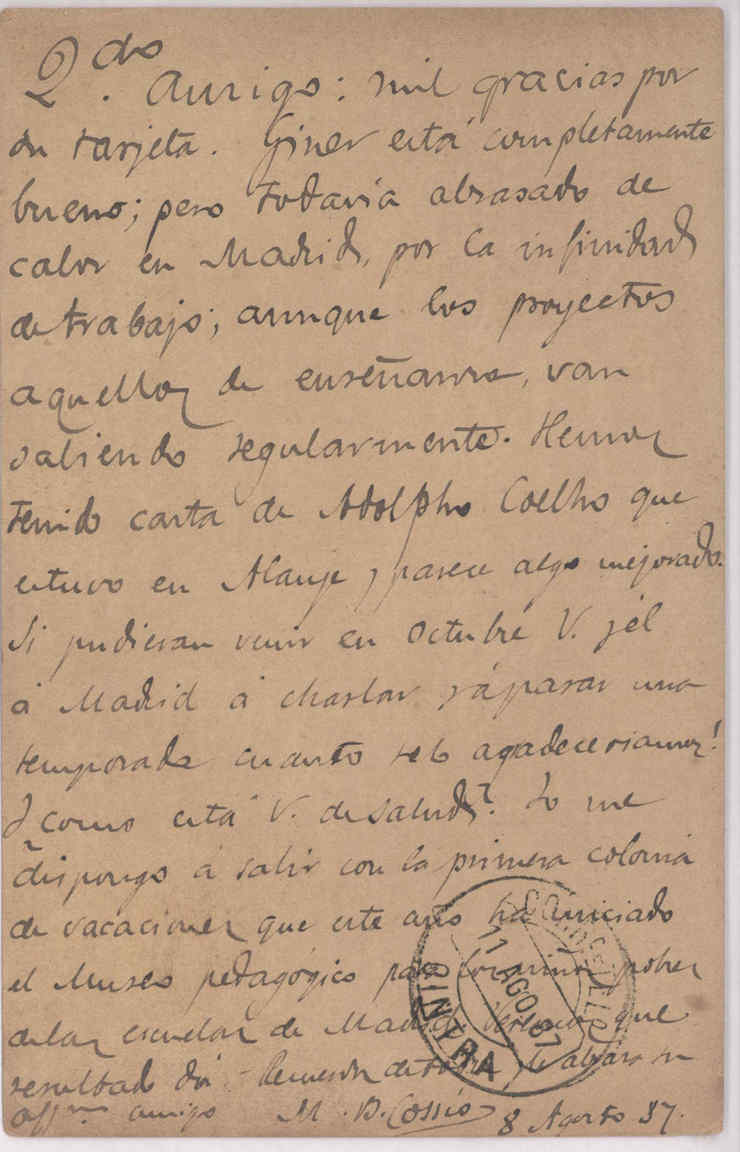 Qdo. amigo: mil gracias por
su tarjeta. Giner está completamente
bueno; pero todavía abrasado de
calor en Madrid, por la infinidad
de trabajo; aunque los proyectos
aquellos de enseñanza, van
saliendo regularmente. Hemos
tenido carta de Adolpho Coelho que
estuvo en Alanje y parece algo mejorado.
Si pudieran venir en Octubre V. y él
á Madrid á charlar y á pasar una
temporada cuanto se lo agradeceriamos!
Y como está V. de salud? Yo me
dispongo á salir con la primera colonia
de vacaciones que este año ha iniciado
el Museo pedagógico para niños pobres
de las escuelas de Madrid. Veremos que
resultado dá. Recuerdos de todos y le abraza su
affmo amigo M. B. Cossío 8 Agosto 87.
CINTRA
11 AGO 87